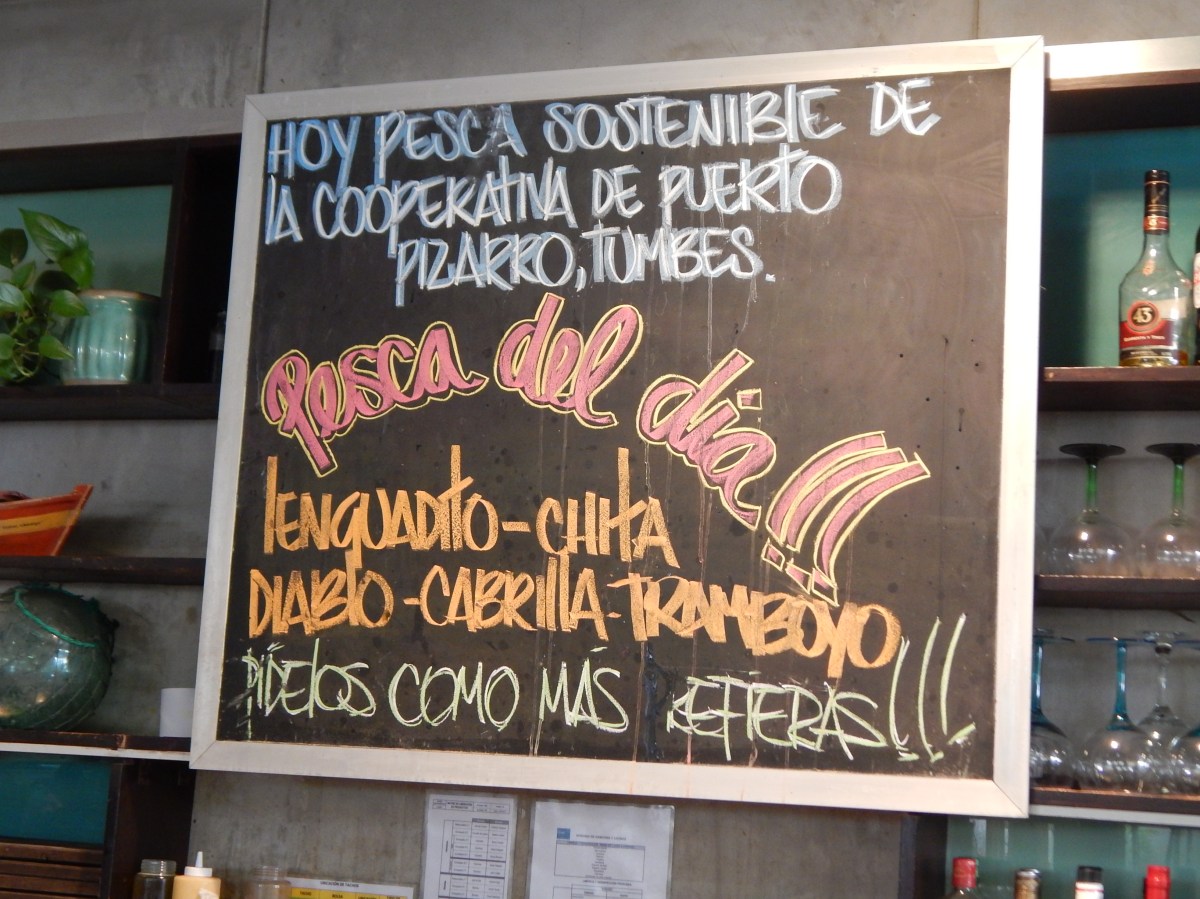 HOY PESCA SOSTENIBLE DE
LA COOPERATIVA DE PUERTO
PIZARRO, TUMBES.
Pesca del dia!!!
LENGUADITO - CHITA
DIABLO - CABRILLA - TRAMBOYO
PÍDELOS COMO MÁS REFIERAS!!!
43